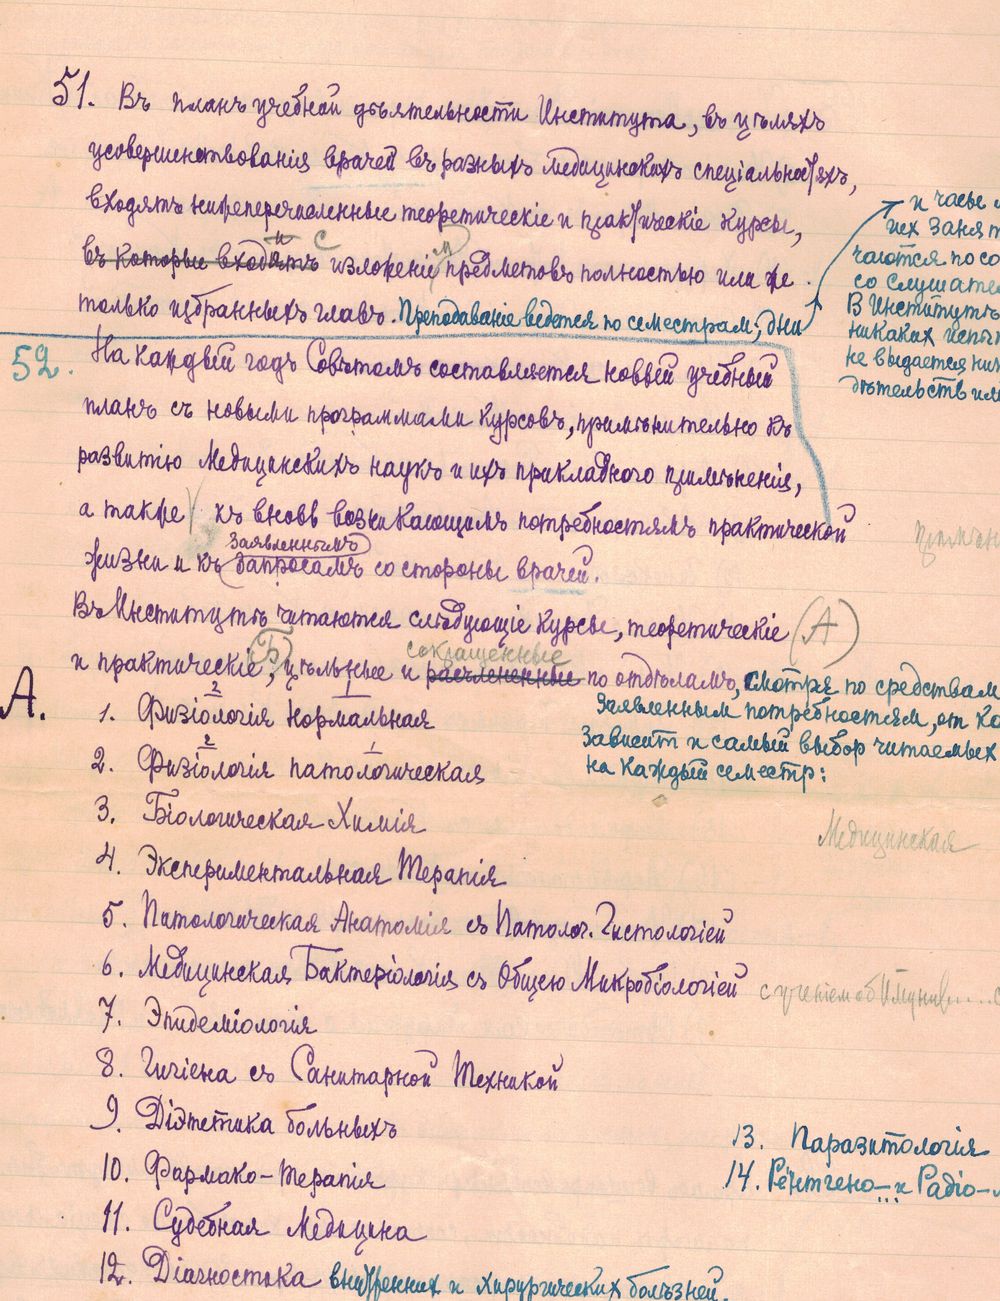 51. Въ планъ учебной дѣятельности Института, въ цѣляхъ
усовершенствованія врачей въ разныхъ медицинскихъ спеціальностяхъ,
входятъ нижеперечисленные теоретическіе и практическіе курсы,
въ которые входятъ и с изложеніем предметовъ полностью или же
только избранныхъ главъ. Преподаваніе ведется по семестрам; дни
и часы
их заня
чаются по со
со слушател
В Институтѣ
никаких испы
не выдается ни
дѣтельств ил
52. На каждый годъ Совѣтомъ составляется новый учебный
планъ съ новыми программами курсовъ, примѣнительно къ
развитію Медицинскихъ наукъ и ихъ прикладного примѣненія,
а также къ вновь возникающимъ потребностямъ практической
примѣн
заявленнымъ
жизни и къ запросамъ со стороны врачей.
Въ Институтѣ читаются слѣдующіе курсы, теоретическіе (А)
Б сокращенные
и практическіе, цѣльные и расчлененные по отдѣламъ, смотря по средствам
заявленным потребностям, от ко
зависит и самый выбор читаемых
на каждый семестр:
А.
1. Физіологія 2 нормальная 1
2. Физіологія 2 патологическая 1
3. Біологическая Химія
Медицинская
4. Экспериментальная Терапія
5. Патологическая Анатомія съ Патолог. Гистологіей
6. Медицинская Бактеріологія съ Общею Микробіологіей с ученіем об Имунив....
7. Эпидеміологія
8. Гигіена съ Санитарной Техникой
9. Діэтетика больныхъ
10. Фармако-терапія
11. Судебная Медицина
12. Діагностика внутренних и хирургических болѣзней.
13. Паразитологія
14. Рентгено- и Радіо-